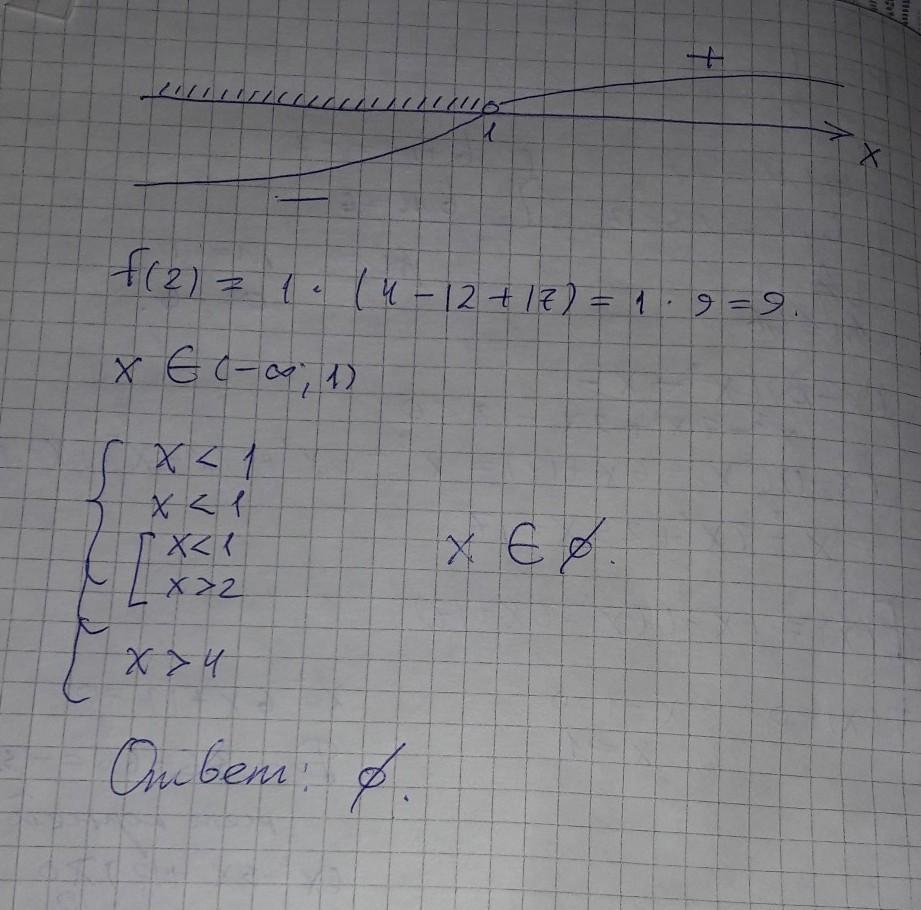 +
1
x
—
f(2) = 1 · (4 - 12 + 17) = 1 · 9 = 9.
x ∈ (-∞; 1)
x < 1
x < 1
x < 1
x > 2
x ∈ ∅.
x > 4
Ответ: ∅.